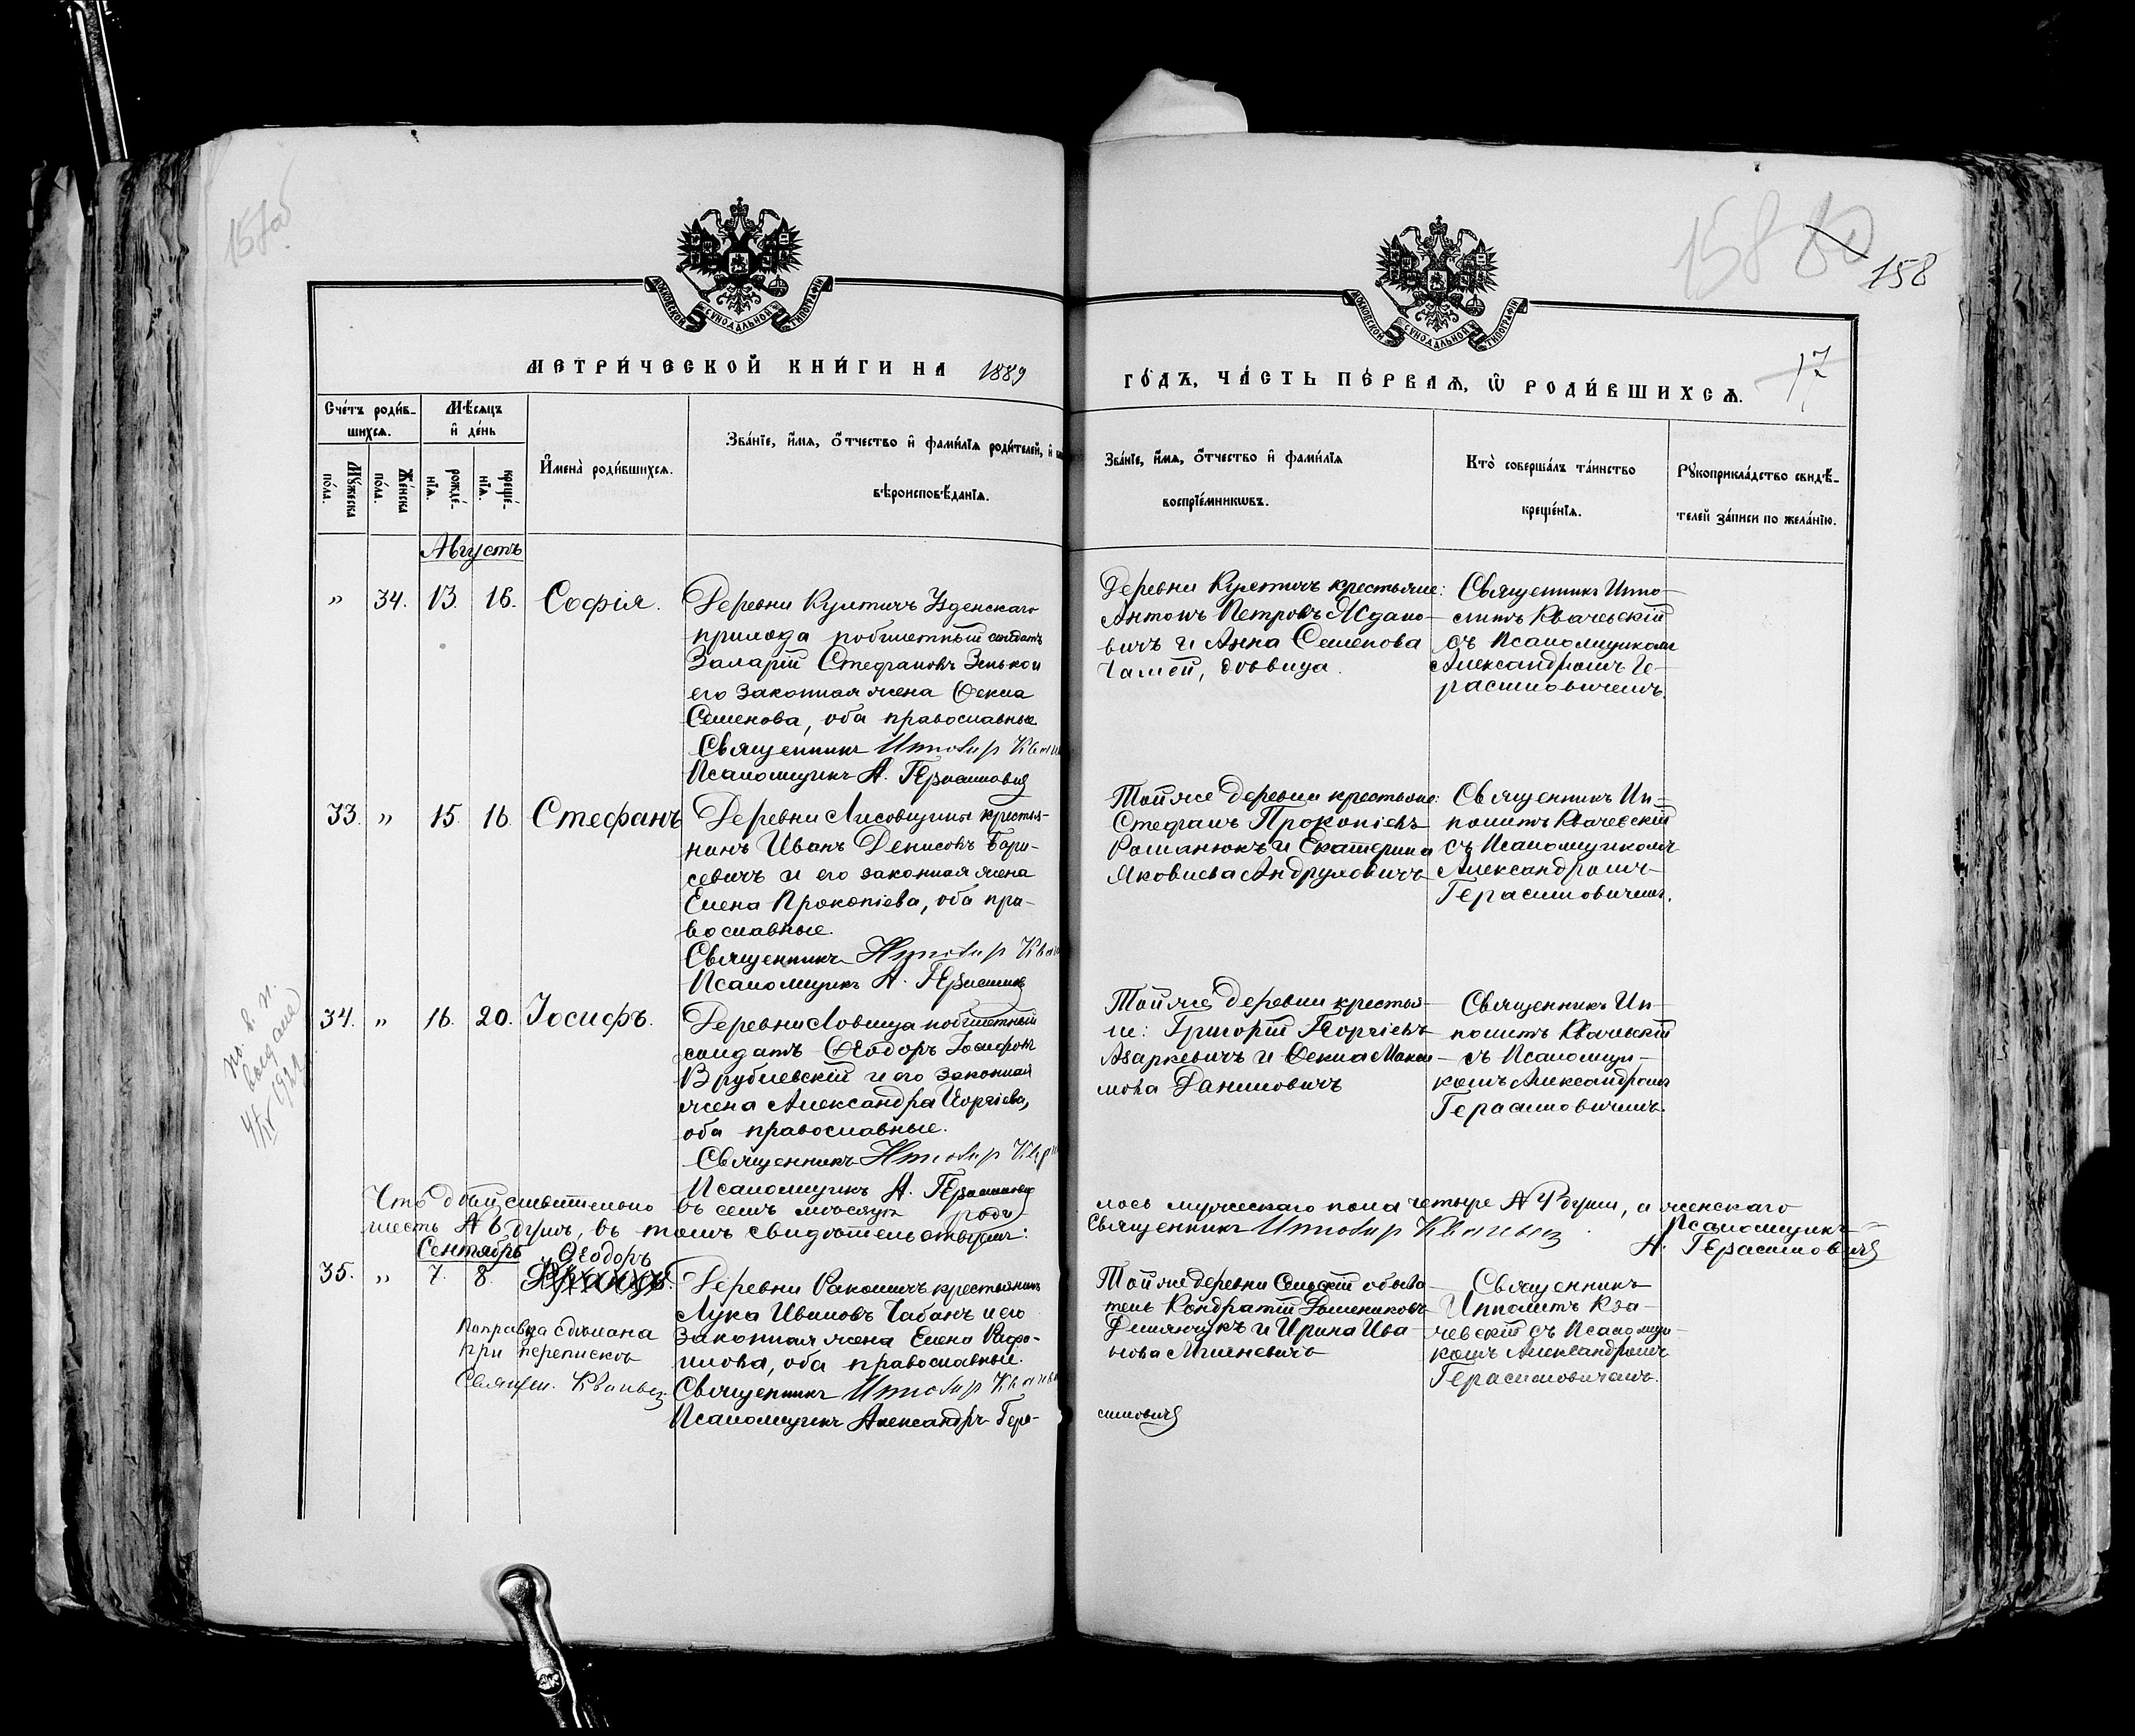 157об
158
80
158
17
МОСКОВСКОЙ СѴНОДАЛЬНОЙ ТИПОГРАФІИ
МОСКОВСКОЙ СѴНОДАЛЬНОЙ ТИПОГРАФІИ
МЕТРИ́ЧЕСКОЙ КНИ́ГИ НА 1889
ГО́ДЪ, ЧА́СТЬ ПЕ́РВАѦ, Ѡ҆ РОДИ́ВШИХСѦ.
Сче́тъ роди́в-
шихсѧ.
Мѣ́сѧцъ
и҆ де́нь
Мꙋ́жеска
по́ла.
Же́нска
по́ла.
рожде́-
нїѧ.
креще́-
нїѧ.
И҆мена̀ роди́вшихсѧ.
Зва́нїе, и҆́мѧ, ѻ҆́тчество и҆ фами́лїѧ роди́телей, и҆
вѣроисповѣ́данїѧ.
Зва́нїе, и҆́мѧ, ѻ҆́тчество и҆ фами́лїѧ
воспрїе́мникѡвъ.
Кто̀ соверша́лъ та́инство
креще́нїѧ.
Рꙋкоприкла́дство свидѣ́-
телей за́писи по жела́нїю.
Августъ
„ 34. 13. 16. Софія.
Деревни Култичъ Узденскаго
прихода побилетный солдатъ
Захарій Стефановъ Зенько и
его законная жена Ѳекла
Семенова, оба православные
Священникъ Ипполитъ
Псаломщикъ А. Герасимовичъ
Деревни Култичъ крестьяне:
Антонъ Петровъ Ждано-
вичъ и Анна Семенова
дѣвица.
Священникъ Иппо-
литъ Квачевскій
съ Псаломщикомъ
Александромъ Ге-
расимовичемъ.
33. „ 15. 16. Стефанъ
Деревни Лисовщины крестья-
нинъ Иванъ Денисовъ Бори-
севичъ и его законная жена
Елена Прокопіева, оба пра-
вославные.
Священникъ Ипполитъ
Псаломщикъ А. Герасимовичъ
Той же деревни крестьяне:
Стефанъ Прокопіевъ
Романюкъ и Екатерина
Яковлева Андруловичъ
Священникъ Ип-
политъ Квачевскій
съ Псаломщикомъ
Александромъ
Герасимовичемъ.
34. „ 16. 20. Іосифъ.
Деревни Ловища побилетный
солдатъ Ѳеодоръ Іосифовъ
Врублевскій и его законная
жена Александра Георгіева,
оба православные.
Священникъ Ипполитъ
Псаломщикъ А. Герасимовичъ
Той же деревни крестья-
не: Григорій Георгіевъ
Азаркевичъ и Ѳекла Макси-
мова Даниловичъ
Священникъ Ип-
политъ Квачевскій
съ Псаломщи-
комъ Александромъ
Герасимовичемъ.
выдана
1921
Что дѣйствительно въ семъ мѣсяцѣ роди-
лось мужескаго пола четыре № 4 души, а женскаго
шесть № 6 душъ, въ томъ свидѣтельствуемъ:
Священникъ Ипполитъ Квачевскій
Псаломщикъ
А. Герасимовичъ
Сентябрь
Ѳеодоръ
35. „ 7. 8.
Поправка сдѣлана
при перепискѣ
Священ. Квачевскій
Деревни Ракошичъ крестьянинъ
Лука Ивановъ Чабанъ и его
законная жена Елена
оба православные.
Священникъ Ипполитъ
Псаломщикъ Александръ Гера-
симовичъ
Той же деревни Сельскій обыва-
тель Кондратій
Демянчукъ и Ирина Ива-
нова
Священникъ
Ипполитъ Ква-
чевскій съ Псаломщи-
комъ Александромъ
Герасимовичемъ.